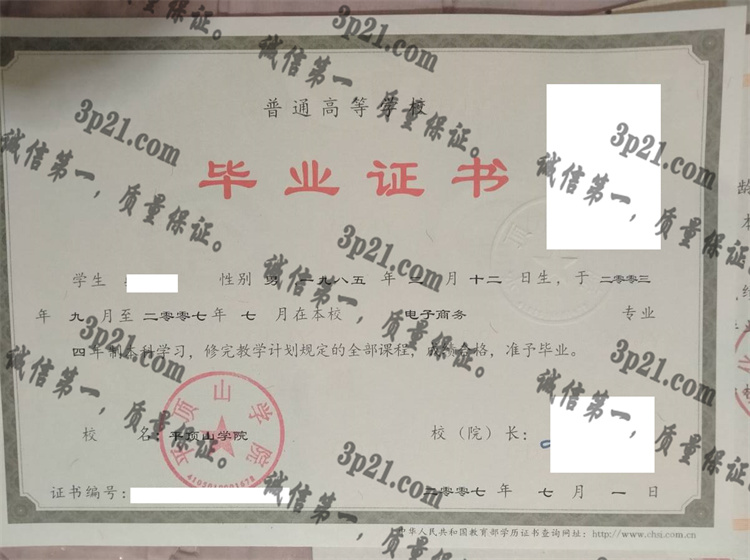 普通高等学校
毕业证书
学生 性别 男 一九八五 年 三 月 十二 日生，于 二零零三
年 九 月至 二零零七 年 七 月在本校 电子商务 专业
四年制本科学习，修完教学计划规定的全部课程，成绩合格，准予毕业。
校 名：平顶山学院
校（院）长：
证书编号：
二零零七 年 七 月 一 日
中华人民共和国教育部学历证书查询网址：http://www.chsi.com.cn
平顶山学院
3p21.com
诚信第一，质量保证。
3p21.com
诚信第一，质量保证。
3p21.com
诚信第一，质量保证。
3p21.com
诚信第一，质量保证。
3p21.com
诚信第一，质量保证。
3p21.com
诚信第一，质量保证。
3p21.com
诚信第一，质量保证。